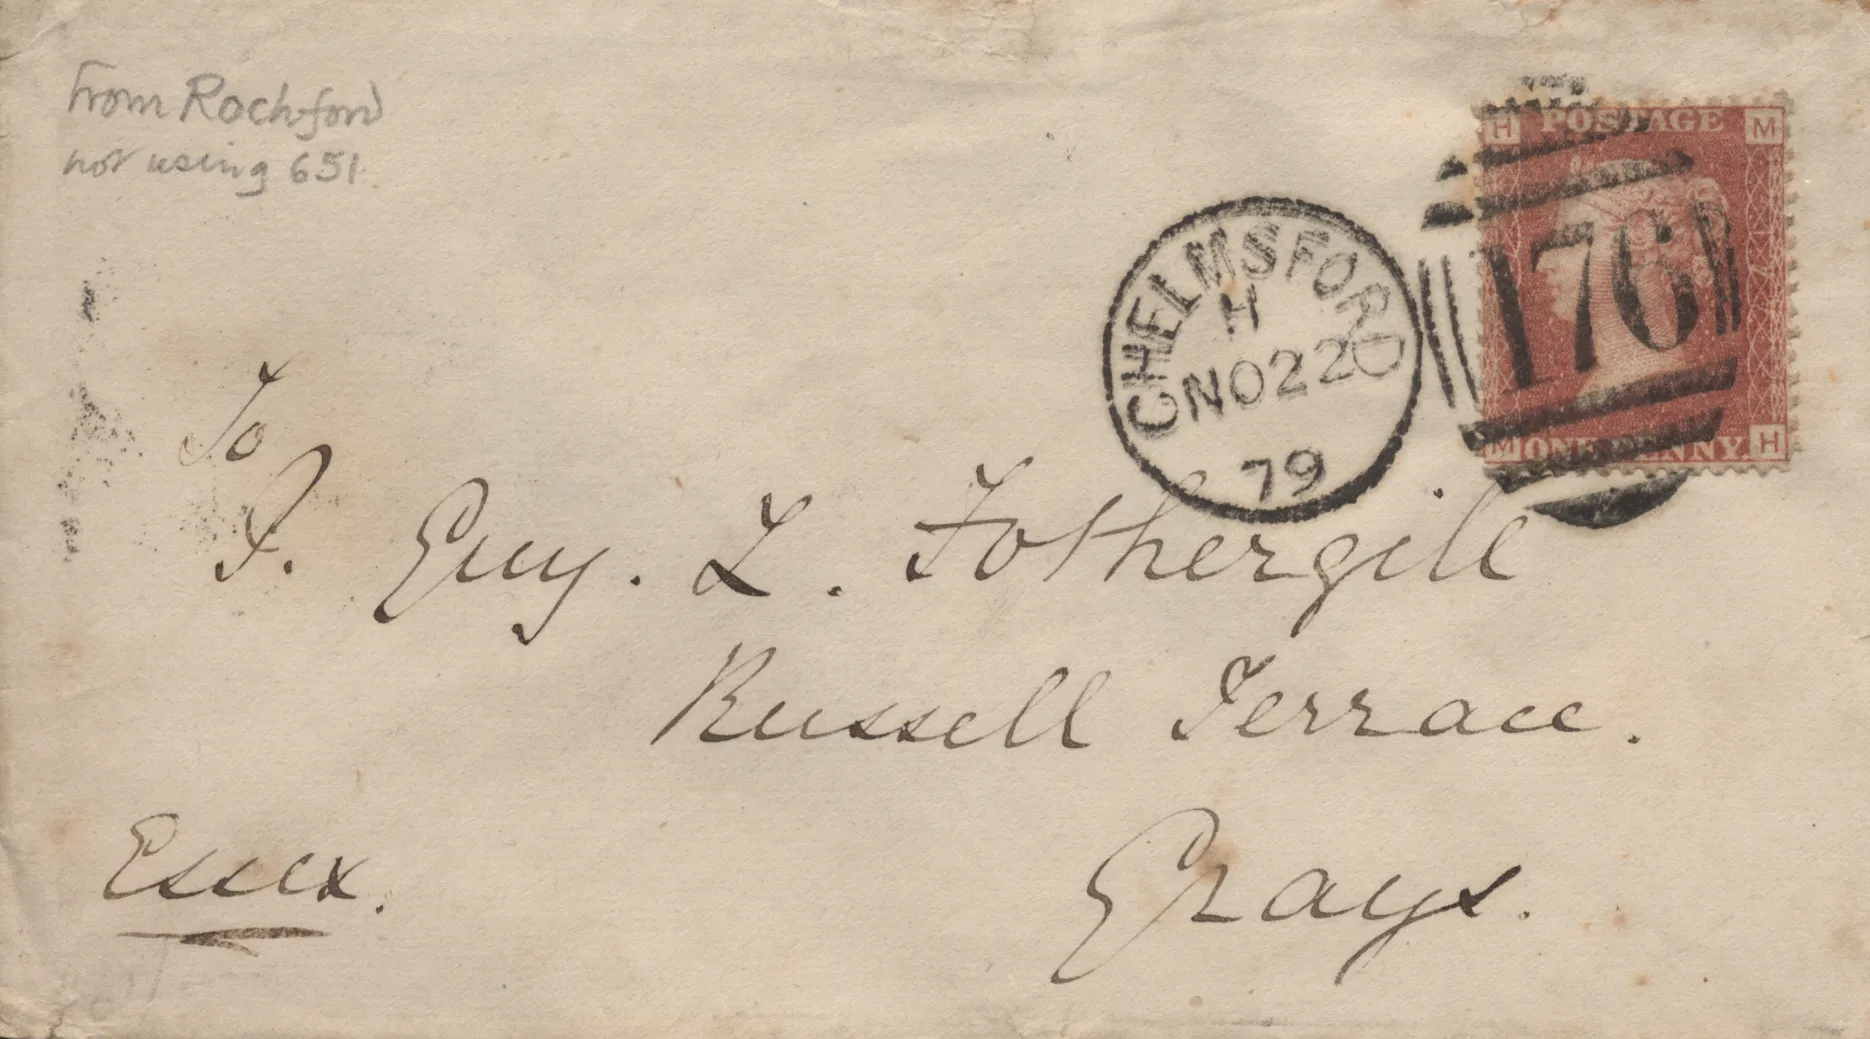 From Rochford
not using 651.
H POSTAGE M
176
M ONE PENNY H
CHELMSFORD
H
NO22
79
To
P. Guy. L. Fothergill
Russell Terrace.
Grays.
Essex.